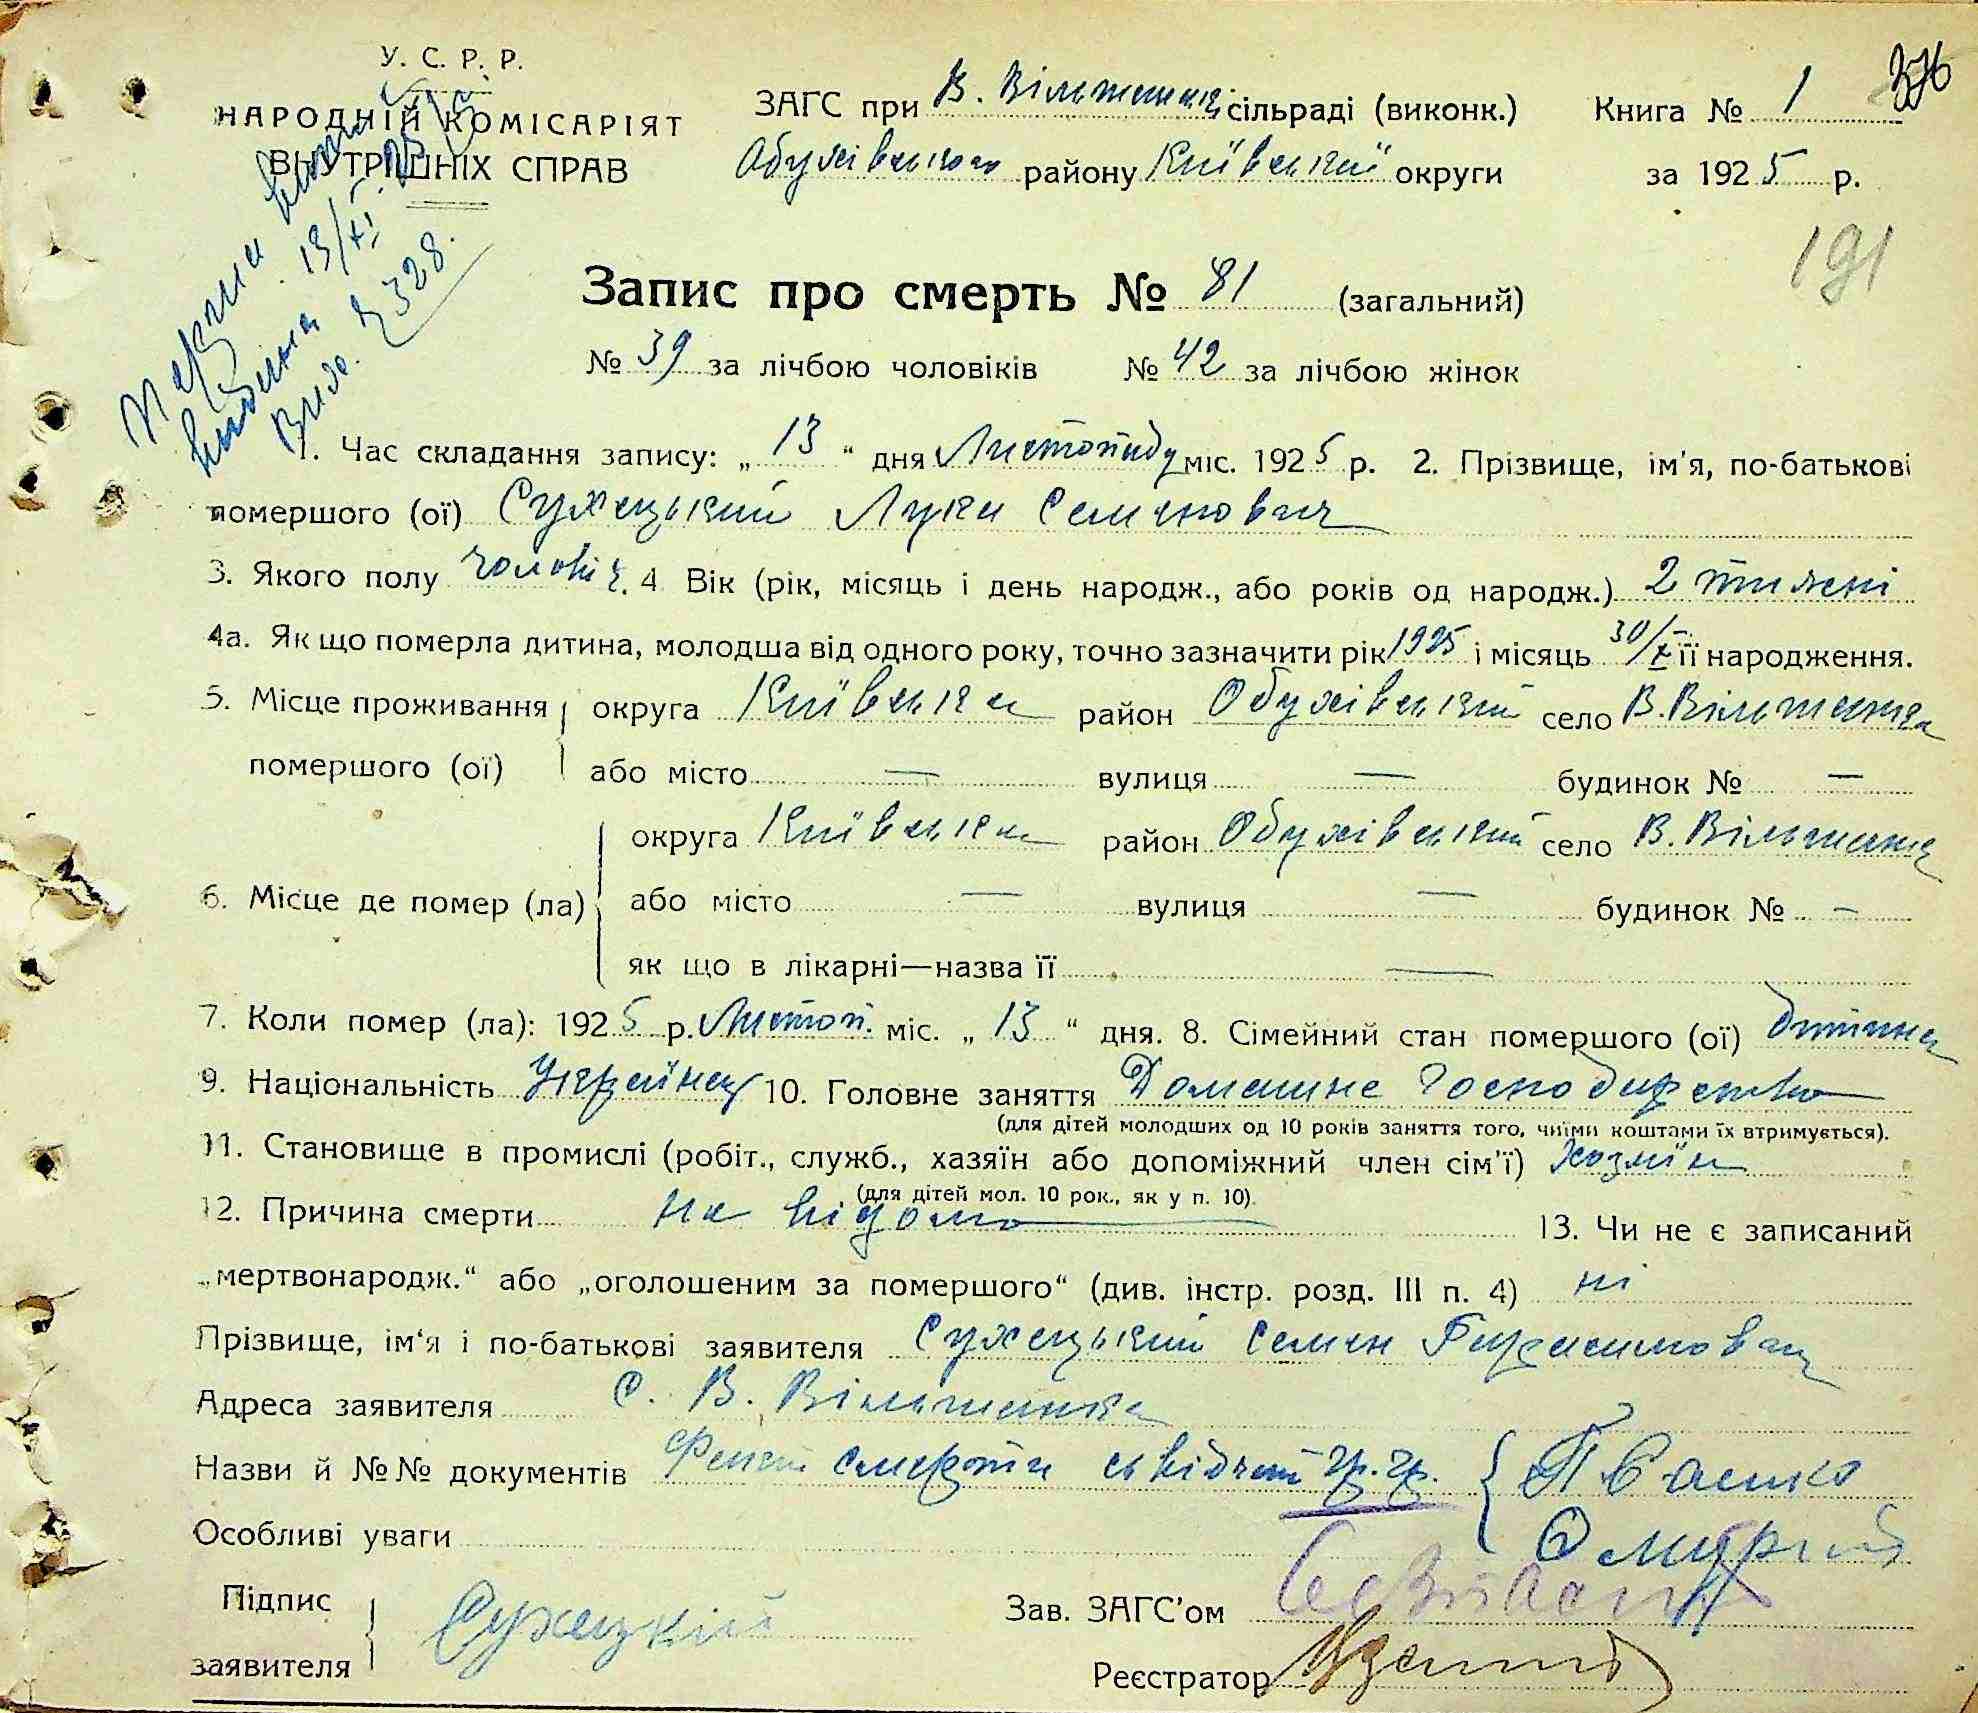 У. С. Р. Р.
НАРОДНІЙ КОМІСАРІЯТ
ВНУТРІШНІХ СПРАВ
ЗАГС при В. Вільшанці сільраді (виконк.)
Обухівського району Київської округи
Книга № 1
376
за 1925 р.
191
13/XI
328.
Запис про смерть № 81 (загальний)
№ 39 за лічбою чоловіків № 42 за лічбою жінок
1. Час складання запису: „ 13 “ дня Листопаду міс. 1925 р. 2. Прізвище, ім'я, по-батькові
помершого (ої) Сухецький Лука Семенович
3. Якого полу чоловіч. 4 Вік (рік, місяць і день народж., або років од народж.) 2 тижні
4а. Як що померла дитина, молодша від одного року, точно зазначити рік 1925 і місяць 30/X її народження.
5. Місце проживання округа Київська район Обухівський село В. Вільшанка
помершого (ої) або місто — вулиця — будинок № —
округа Київська район Обухівський село В. Вільшанка
6. Місце де помер (ла) або місто — вулиця — будинок № —
як що в лікарні—назва її —
7. Коли помер (ла): 1925 р. Листоп. міс. „ 13 “ дня. 8. Сімейний стан помершого (ої) дитина
9. Національність Українец 10. Головне заняття Домашнє Господарство
(для дітей молодших од 10 років заняття того, чиїми коштами їх втримується).
11. Становище в промислі (робіт., служб., хазяїн або допоміжний член сім'ї) Хозяїн
(для дітей мол. 10 рок., як у п. 10).
12. Причина смерти не відомо 13. Чи не є записаний
„мертвонародж.“ або „оголошеним за помершого“ (див. інстр. розд. III п. 4) ні
Прізвище, ім'я і по-батькові заявителя Сухецький Семен Гарасимович
Адреса заявителя С. В. Вільшанка
Назви й №№ документів Факт смерти свідчат гр. гр.
Особливі уваги
Підпис
заявителя Сухецкій
Зав. ЗАГС'ом
Реєстратор